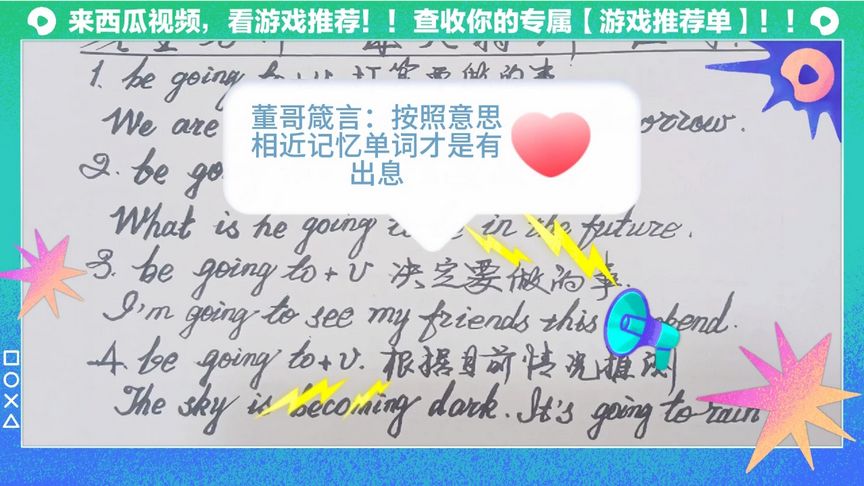 来西瓜视频，看游戏推荐！！查收你的专属【游戏推荐单】！！
1. be going to+v 打算要做的事
We are orrow.
董哥箴言：按照意思
相近记忆单词才是有
出息
2. be go
What is he going in the future.
3. be going to+v 决定要做的事.
I'm going to see my friends this
4. be going to+v. 根据目前情况推测
The sky is becoming dark. It's going to rain